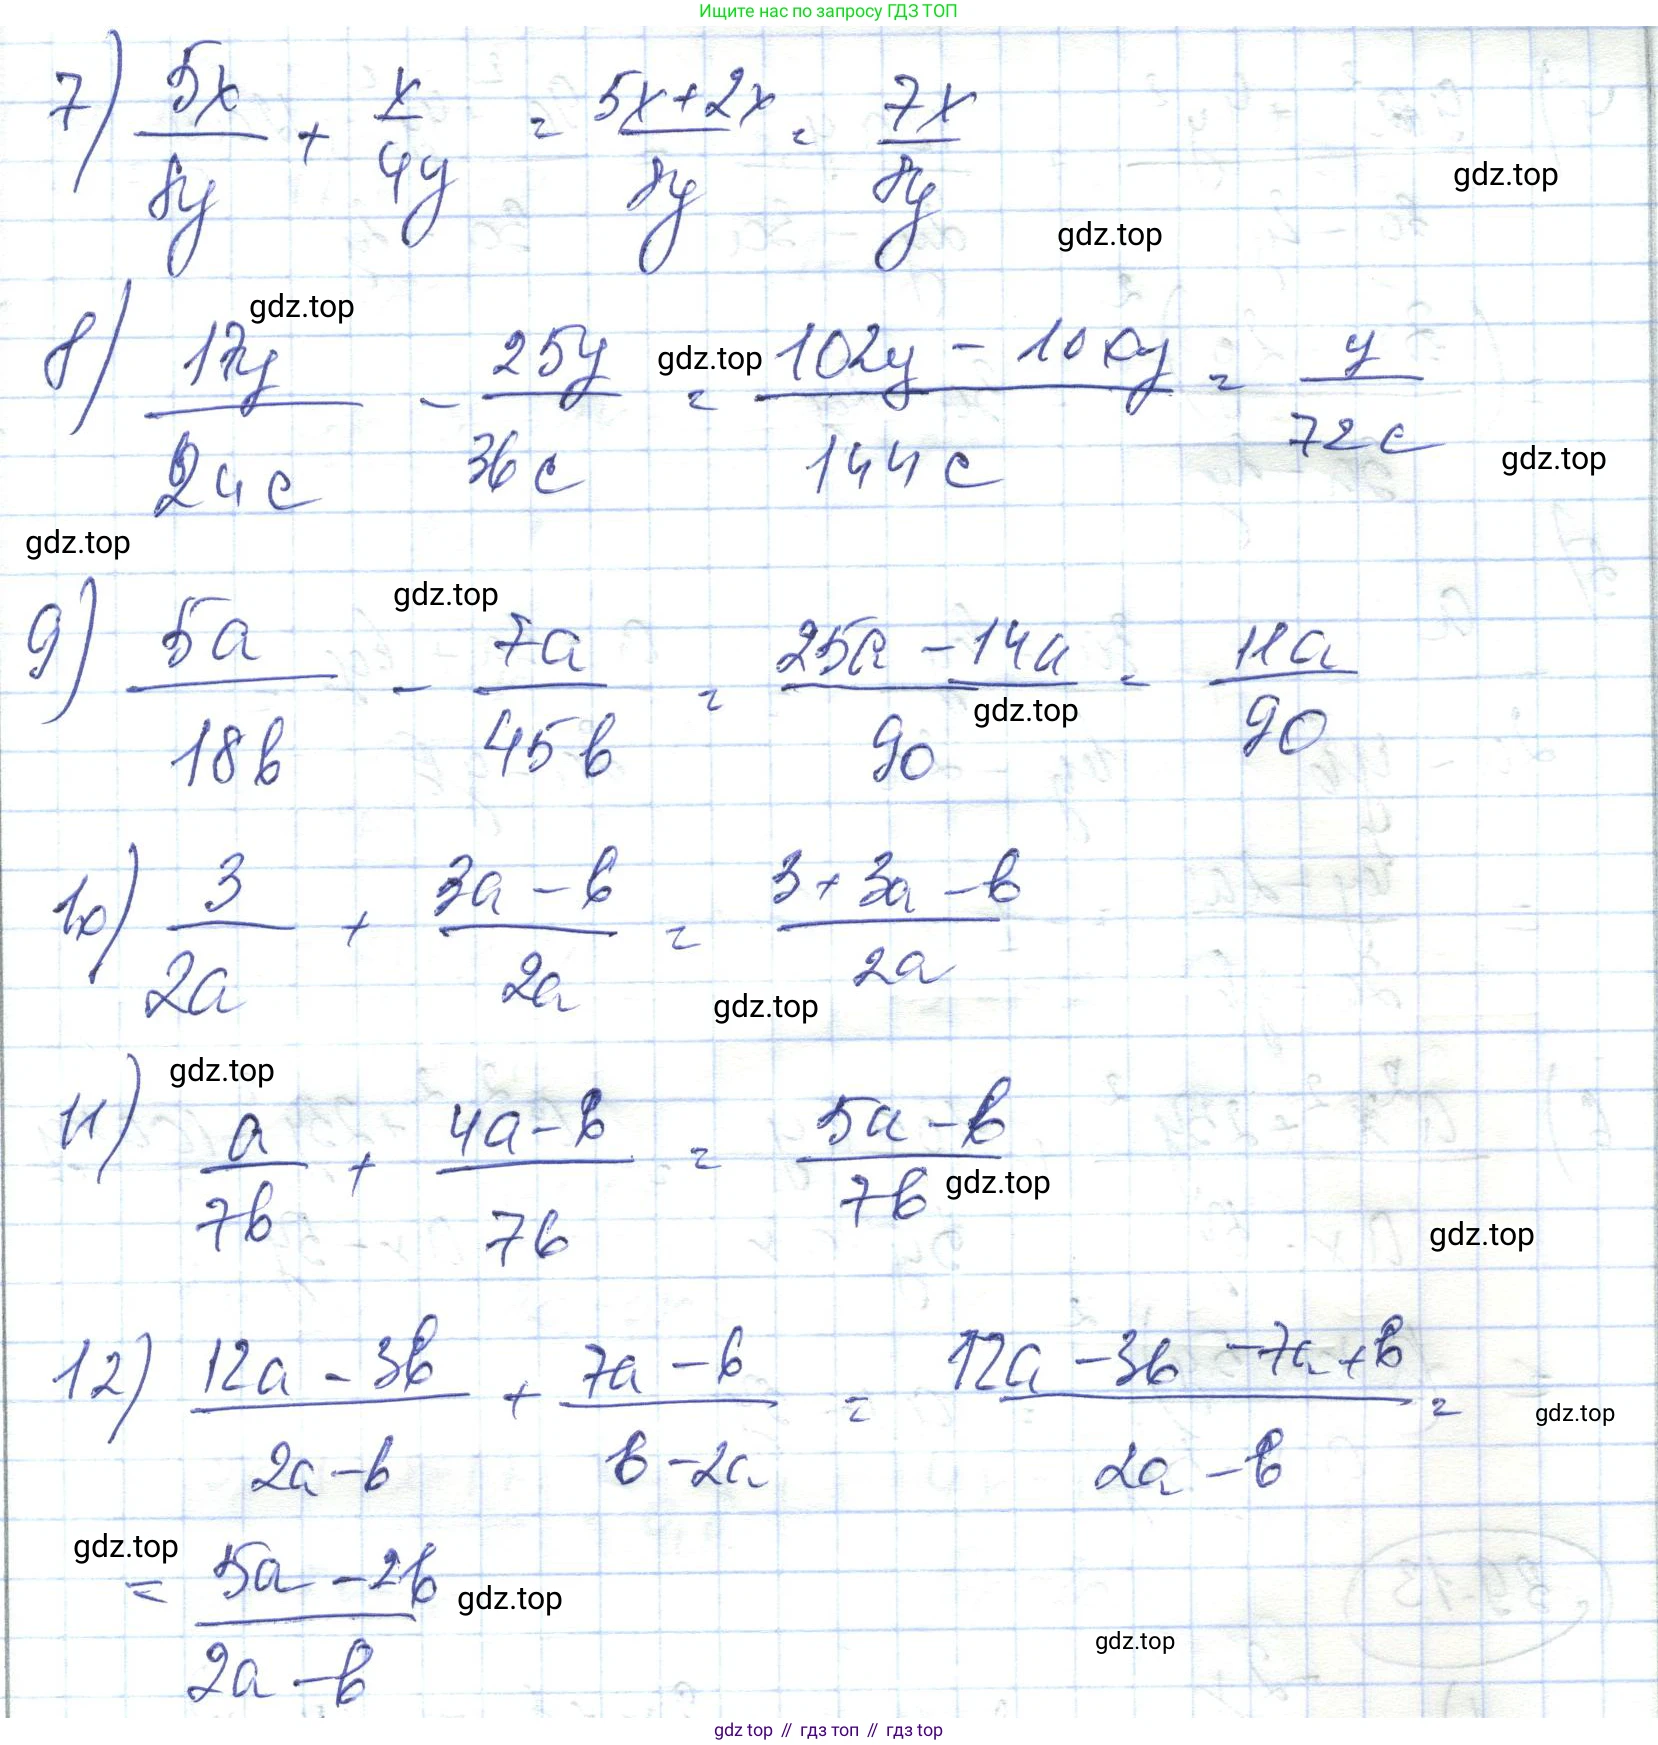 Ищите нас по запросу ГДЗ ТОП
7) 5x/8y + x/4y = 5x+2x/8y = 7x/8y
gdz.top
gdz.top
gdz.top
8) 17y/24c - 25y/36c = 102y - 100y/144c = y/72c
gdz.top
gdz.top
gdz.top
gdz.top
9) 5a/18b - 7a/45b = 25a - 14a/90 = 11a/90
gdz.top
10) 3/2a + 3a - b/2a = 3 + 3a - b/2a
gdz.top
gdz.top
11) a/7b + 4a - b/7b = 5a - b/7b
gdz.top
gdz.top
12) 12a - 3b/2a - b + 7a - b/b - 2a = 12a - 3b - 7a + b/2a - b =
gdz.top
gdz.top
= 5a - 2b/2a - b
gdz.top
gdz.top
gdz top // гдз топ // gdz top